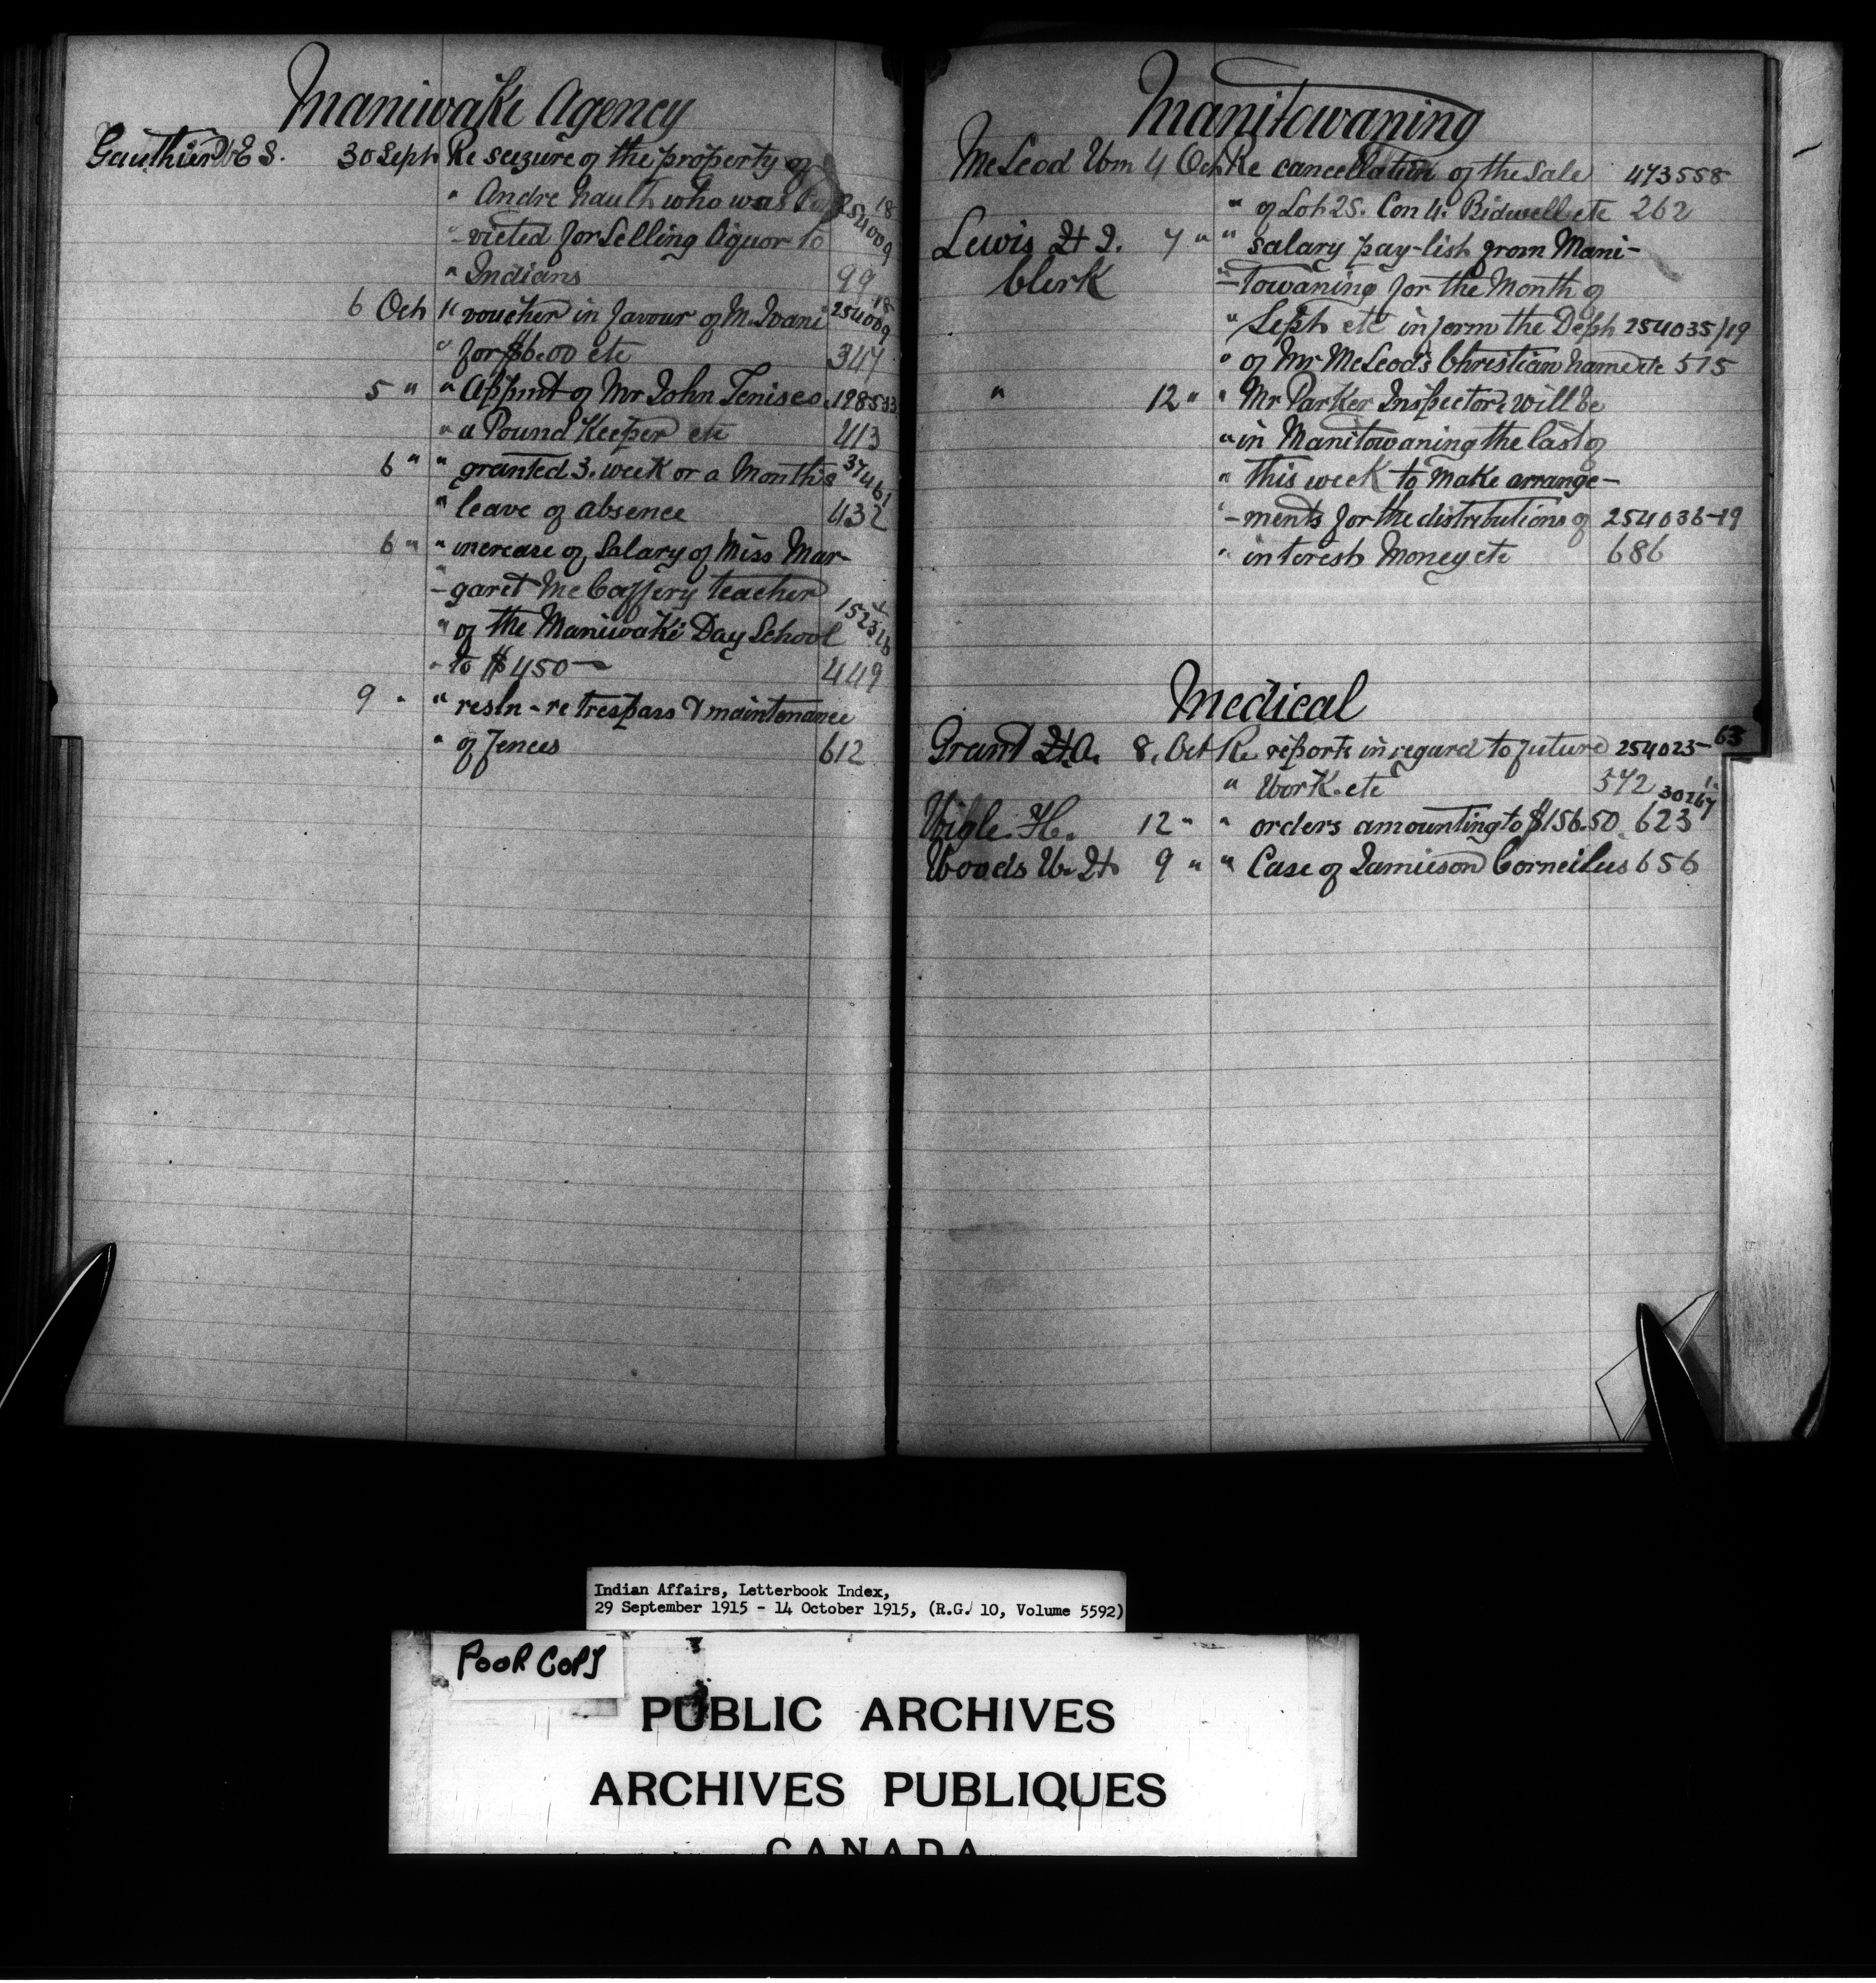 Maniwaki Agency
Gauthier E S. 30 Sept Re seizure of the property of
" Andre Nault who was Con 254009 18
- victed for Selling liquor to
" Indians 99
6 Oct " voucher in favour of M. 254009 18
" for $6.00 etc 347
5 " " Appmt of Mr John Tenisco. 198533
" a Pound Keeper etc 413
6 " " granted 3. week or a Month's 37461
" leave of absence 432
6 " " increase of Salary of Miss Mar-
- garet McCaffery teacher
" of the Maniwaki Day School
" to $450- 449
9 " " resln - re trespass & maintenance
" of fences 612
Manitowaning
McLeod Wm 4 Oct Re cancellation of the Sale 473558
" of Lot 25. Con 4. Bidwell etc 262
Lewis H J. 7 " " salary pay-list from Mani-
Clerk - towaning for the Month of
" Sept etc inform the Dept 254035/19
" of Mr McLeod's Christian name etc 515
" 12 " " Mr Parker Inspector, will be
" in Manitowaning the last of
" this week to make arrange-
- ments for the distributions of 254036-19
" interest Money etc 686
Medical
Grant H.A. 8. Oct Re reports in regard to future 254023-63
" Work. etc 572
Wigle. H. 12 " " orders amounting to $156.50 623
Woods W. H 9 " " Case of Jamieson Corneilus 656
Indian Affairs, Letterbook Index,
29 September 1915 - 14 October 1915, (R.G. 10, Volume 5592)
POOR COPY
PUBLIC ARCHIVES
ARCHIVES PUBLIQUES
CANADA